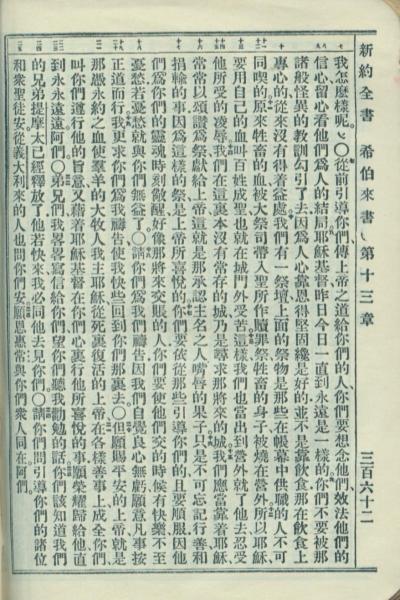 新約全書 希伯來書 第十三章 三百六十二
我怎麼樣呢〇從前引導你們傳上帝之道給你們的人你們要想念他們效法他們的
信心留心看他們爲人的結局耶穌基督昨日今日一直到永遠是一樣的你們不要被那
諸般怪異的教訓勾引了去因爲人心靠恩得堅固纔是好的並不是靠飲食那在飲食上
專心的從來沒有得着益處我們有一祭壇上面的祭物是那些在帳幕中供職的人不可
同喫的原來牲畜的血被大祭司帶入聖所作贖罪祭牲畜的身子被燒在營外所以耶穌
要用自己的血叫百姓成聖也就在城門外受苦這樣我們也當出到營外就了他去忍受
他所受的凌辱我們在這裏本沒有常存的城乃是尋求那將來的城我們應當靠着耶穌
常常以頌讚爲祭獻給上帝這就是那承認主名之人嘴脣的果子只是不可忘記行善和
捐輸的事因爲這樣的祭是上帝所喜悅的你們要依從那些引導你們的且要順服因他
們爲你們的靈魂時刻儆醒好像那將來交賬的人你們要使他們交的時候有快樂不至
憂愁若憂愁就與你們無益了〇請你們爲我們禱告因我們自覺良心無虧願意凡事按
正道而行我更求你們爲我禱告使我快些回到你們那裏去〇但願賜平安的上帝就是
那憑永約之血使羣羊的大牧人我主耶穌從死裏復活的上帝在各樣善事上成全你們
叫你們遵行他的旨意又藉着耶穌基督在你們心裏行他所喜悅的事願榮耀歸給他直
到永永遠遠阿們〇弟兄們我畧畧寫信給你們望你們聽我勸勉的話你們該知道我們
的兄弟提摩太已經釋放了他若快來我必同他去見你們〇請你們問引導你們的諸位
和衆聖徒安從義大利來的人也問你們安願恩惠常與你們衆人同在阿們